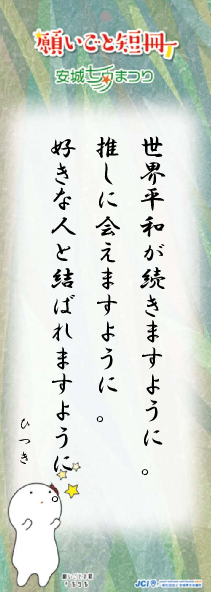 願いごと短冊
安城七夕まつり
世界平和が続きますように。
推しに会えますように。
好きな人と結ばれますように
ひつき
JCI